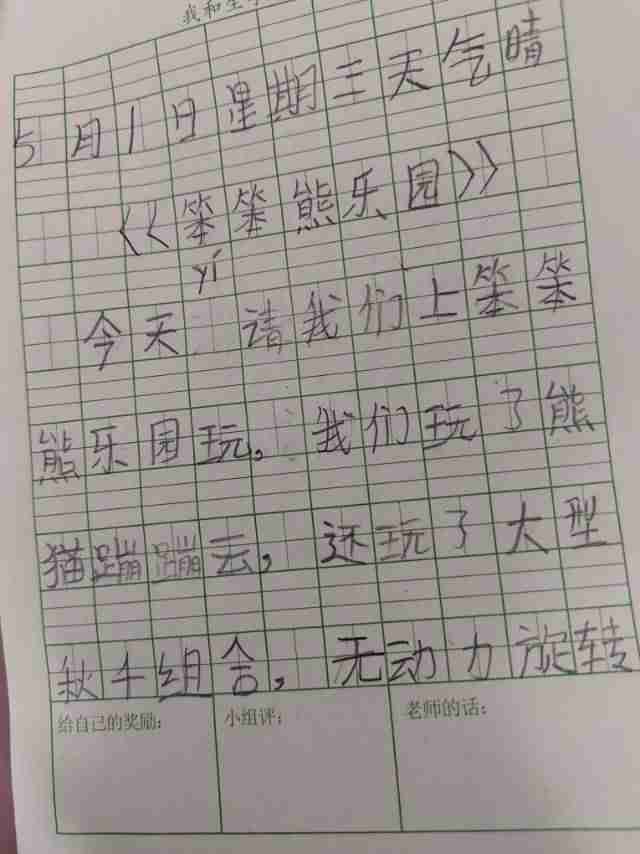 我和生
5月1日星期三天气晴
《笨笨熊乐园》
yí
今天 请我们上笨笨
熊乐园玩，我们玩了熊
猫蹦蹦云，还玩了大型
秋千组合，无动力旋转
给自己的奖励：
小组评：
老师的话：